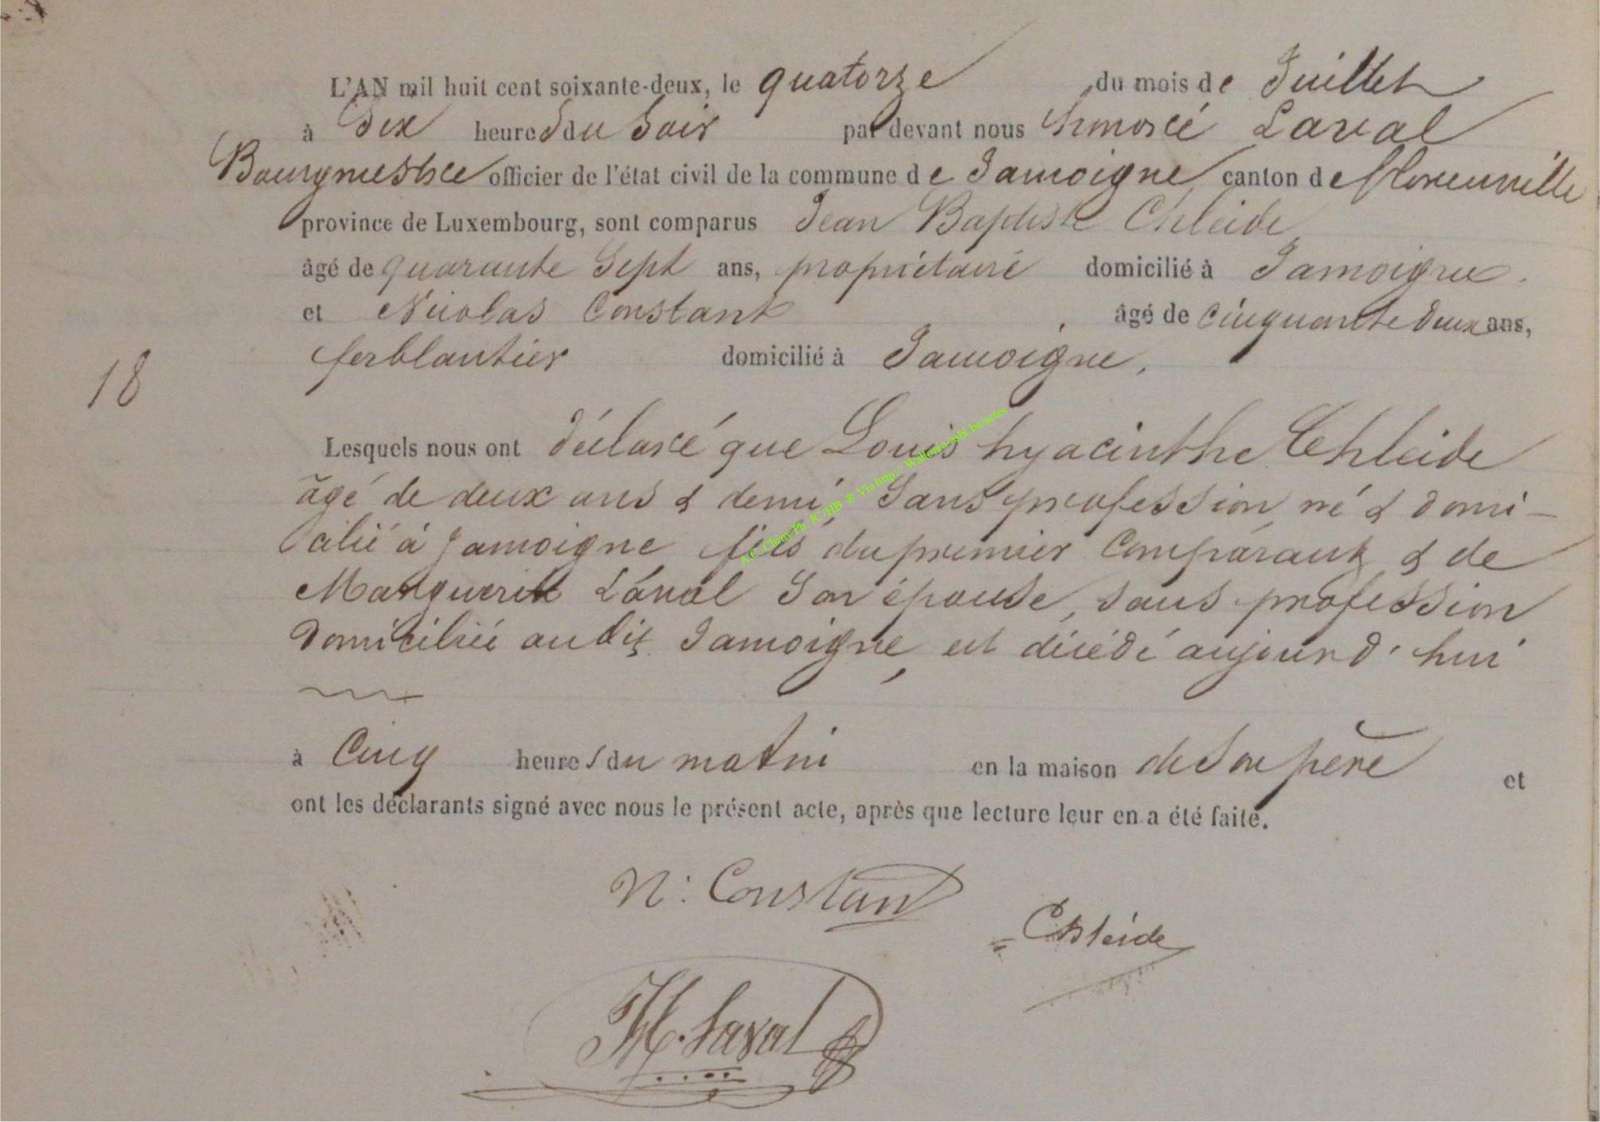 L'AN mil huit cent soixante-deux, le quatorze du mois de Juillet
à Dix heures du Soir par devant nous honoré Laval
Bourgmestre officier de l'état civil de la commune de Jamoigne, canton de florenville
province de Luxembourg, sont comparus Jean Baptiste Chleide
âgé de quarante Sept ans, propriétaire domicilié à Jamoigne.
et Nicolas Constant âgé de cinquante deux ans,
ferblantier domicilié à Jamoigne,
18
Lesquels nous ont déclaré que Louis hyacinthe Chleide
âgé de deux ans & demi, Sans profession né & domi-
cilié à Jamoigne fils du premier Comparant & de
Marguerite Laval Son épouse, sans profession
Domiciliée audit Jamoigne, est décédé aujourd'hui
à Cinq heures du matin en la maison de Son père et
ont les déclarants signé avec nous le présent acte, après que lecture leur en a été faite.
N: Constant
Chleide
H. Laval